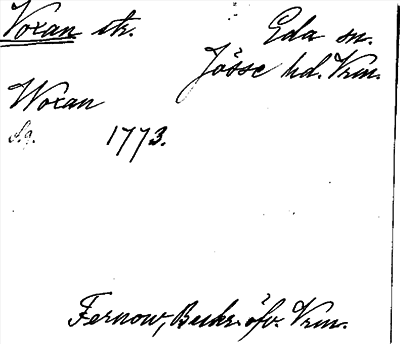 Voxan str. Eda sn.
Jösse hd. Vrm.
Woxan
S.g. 1773.
Fernow, Beskr. öfv. Vrm.